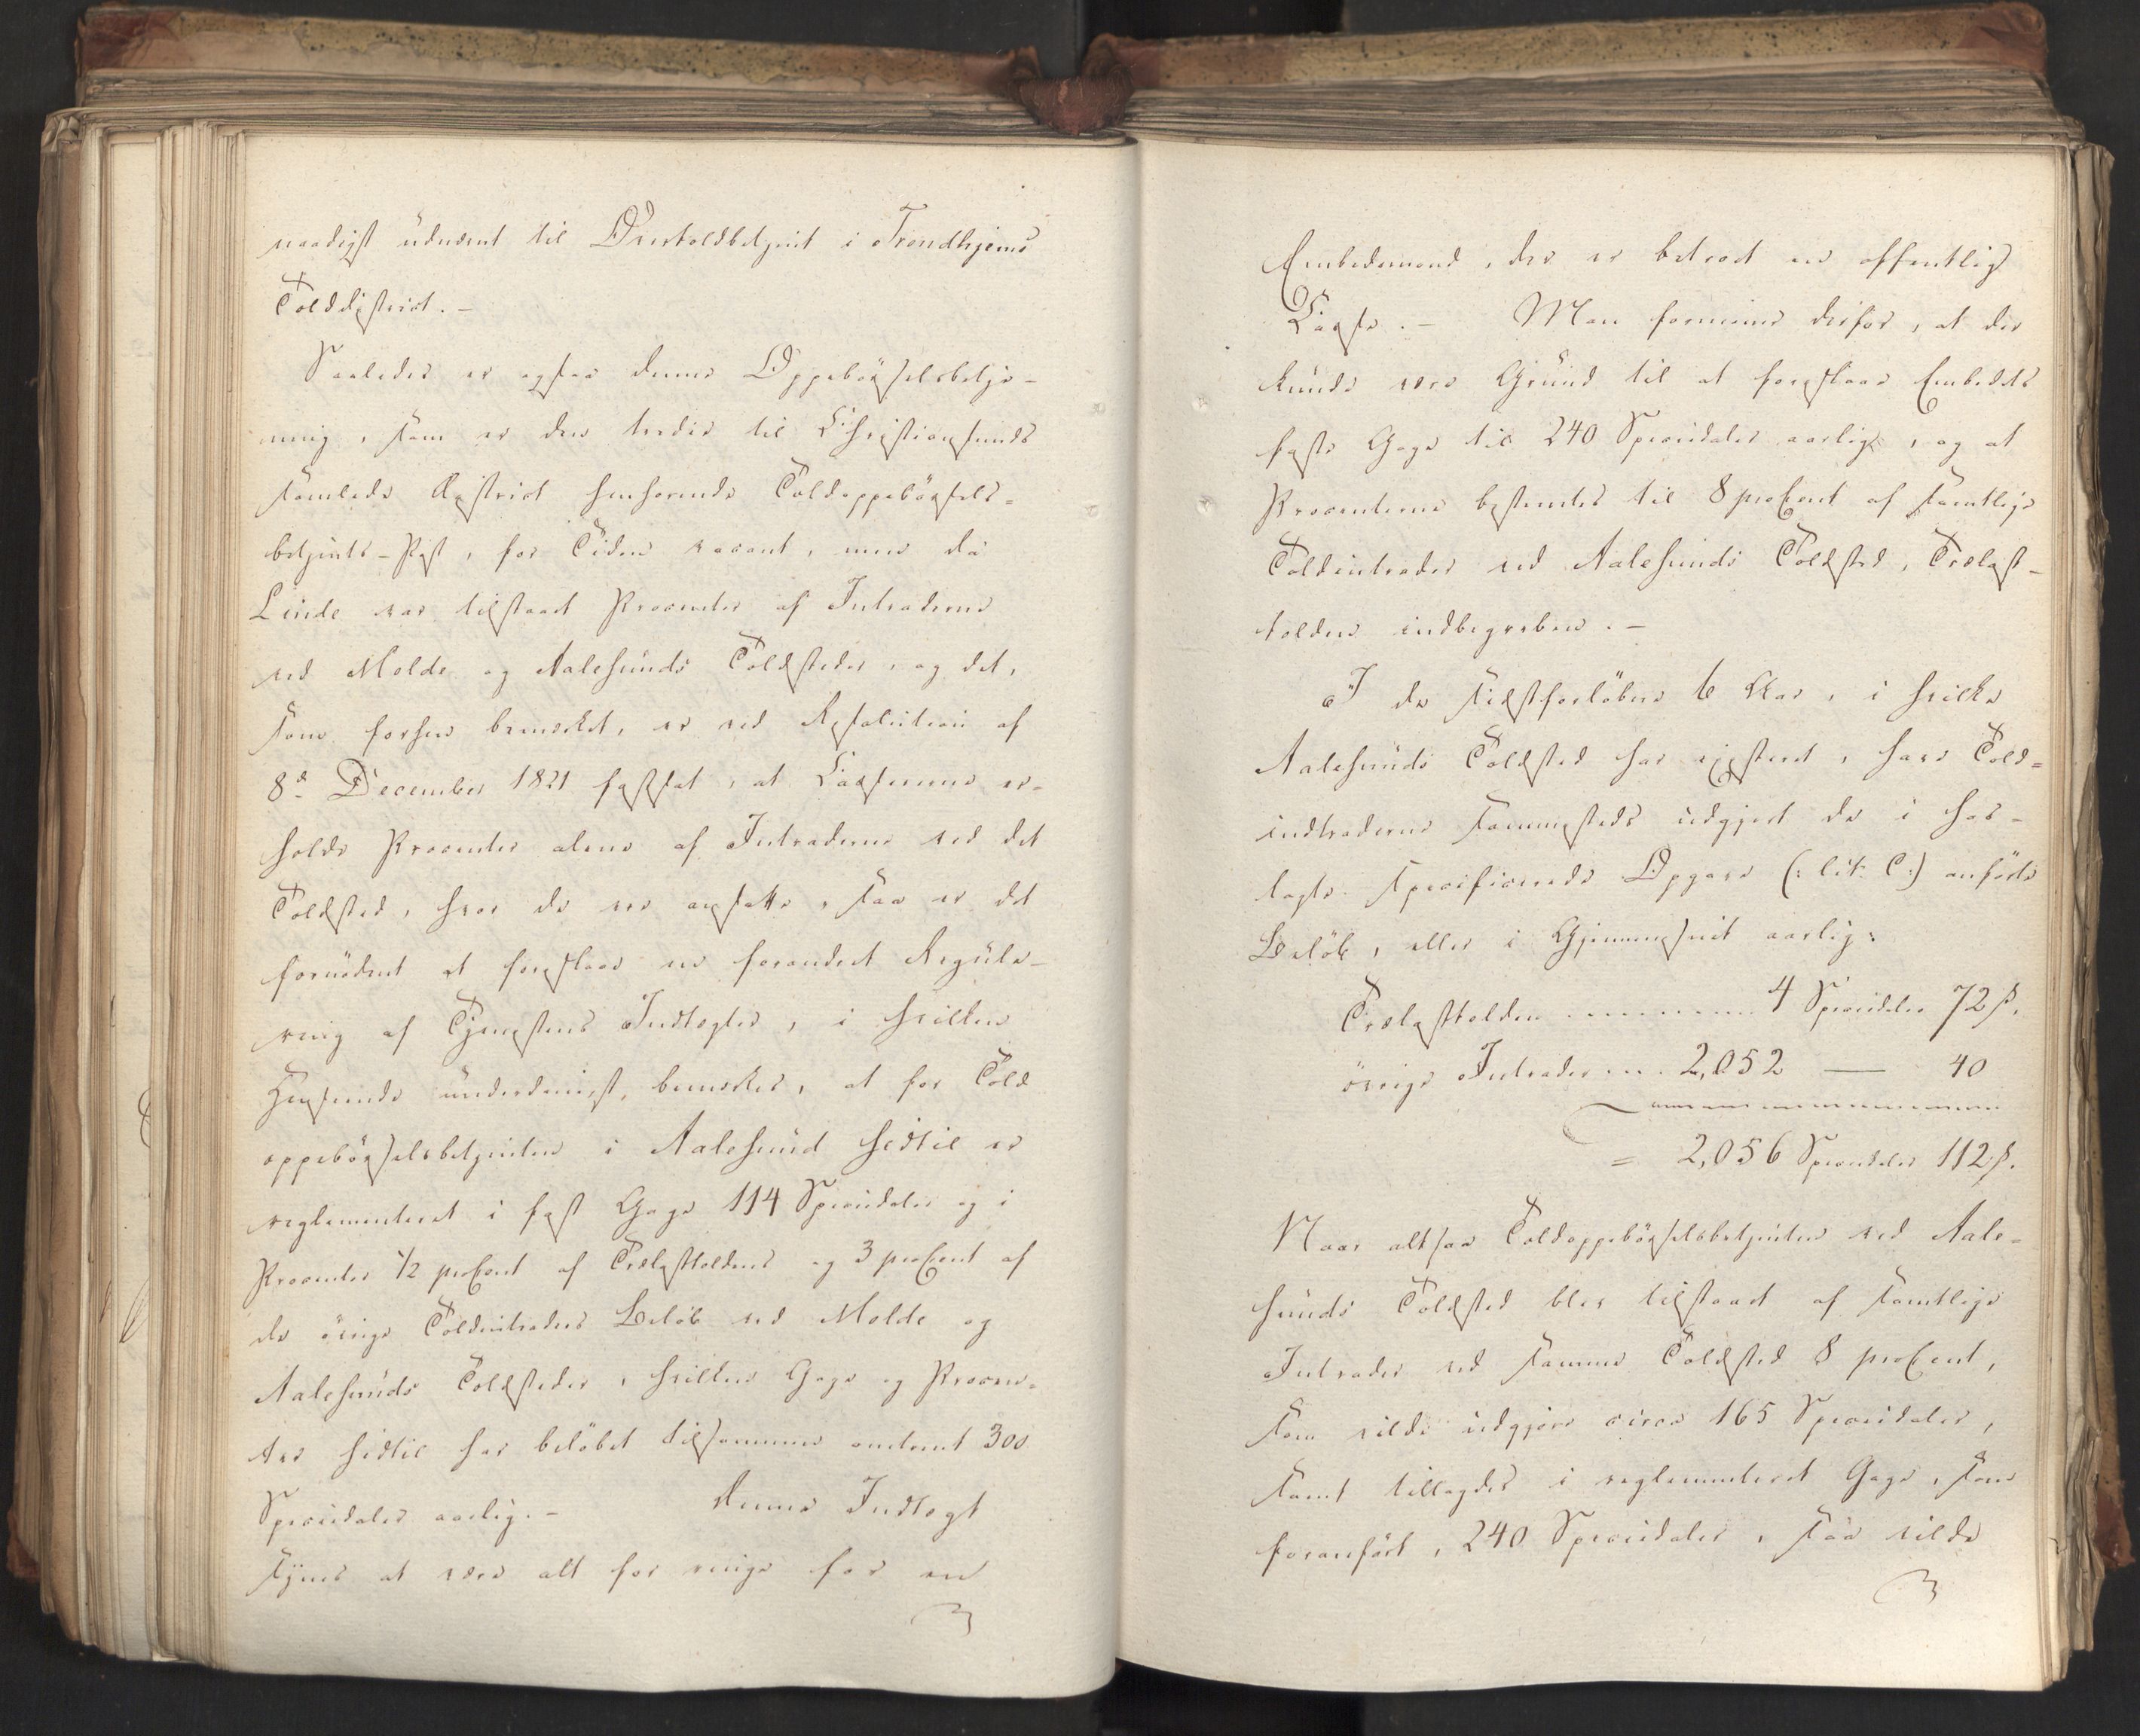 naadigst udnævnt til Overtoldbetjent i Trondhjems
Tolddistrict. –
Saaledes er ogsaa denne Oppebørselsbetje-
ning, som er den tredie til Christiansunds
samlede District henhørende Toldoppebørsels-
betjents-Post, for Tiden vacant, men da
Linde var tilstaaet Procenter af Intraderne
ved Molde og Aalesunds Toldsteder, og det,
som forhen bemærket, er ved Resolution af
8de December 1821 fastsat, at Casserne er-
holde Procenter alene af Intraderne ved det
Toldsted, hvor de ere ansatte, saa er det
fornødent at foreslaae en forandret Regule-
ring af Tjenestens Indtægter, i hvilken
Henseende underdanigst bemærkes, at for Told
oppebørselsbetjenten i Aalesund hidtil er
reglementeret i fast Gage 114 Speciedaler og i
Procenter 1/2 proCent af Trælasttoldens og 3 proCent af
de øvrige Toldintraders Beløb ved Molde og
Aalesunds Toldsteder, hvilken Gage og Procen-
ter hidtil har beløbet tilsammen omtrent 300
Speciedaler aarlig. – Denne Indtægt
synes at være alt for ringe for en
Embedsmand, der er betroet en offentlig
Casse. – Man formener derfor, at der
kunde være Grund til at foreslaae Embedets
faste Gage til 240 Speciedaler aarlig, og at
Procenterne bestemtes til 8 proCent af samtlige
Toldintrader ved Aalesunds Toldsted, Trælast-
tolden indbegreben. –
I de sidstforløbne 6 Aar, i hvilke
Aalesunds Toldsted har existeret, have Told-
indtraderne sammesteds udgjort de i hos-
lagte specificerede Opgave (: lit: C :) anførte
Beløb, eller i Gjennemsnit aarlig:
Trælasttolden ........ 4 Speciedaler 72 ß.
øvrige Intrader .... 2,052 — 40
= 2,056 Speciedaler 112 ß.
Naar altsaa Toldoppebørselsbetjenten ved Aale-
sunds Toldsted blev tilstaaet af samtlige
Intrader ved samme Toldsted 8 proCent,
som vilde udgjøre circa 165 Speciedaler,
samt tillagdes i reglementeret Gage, som
foranført, 240 Speciedaler, saa vilde